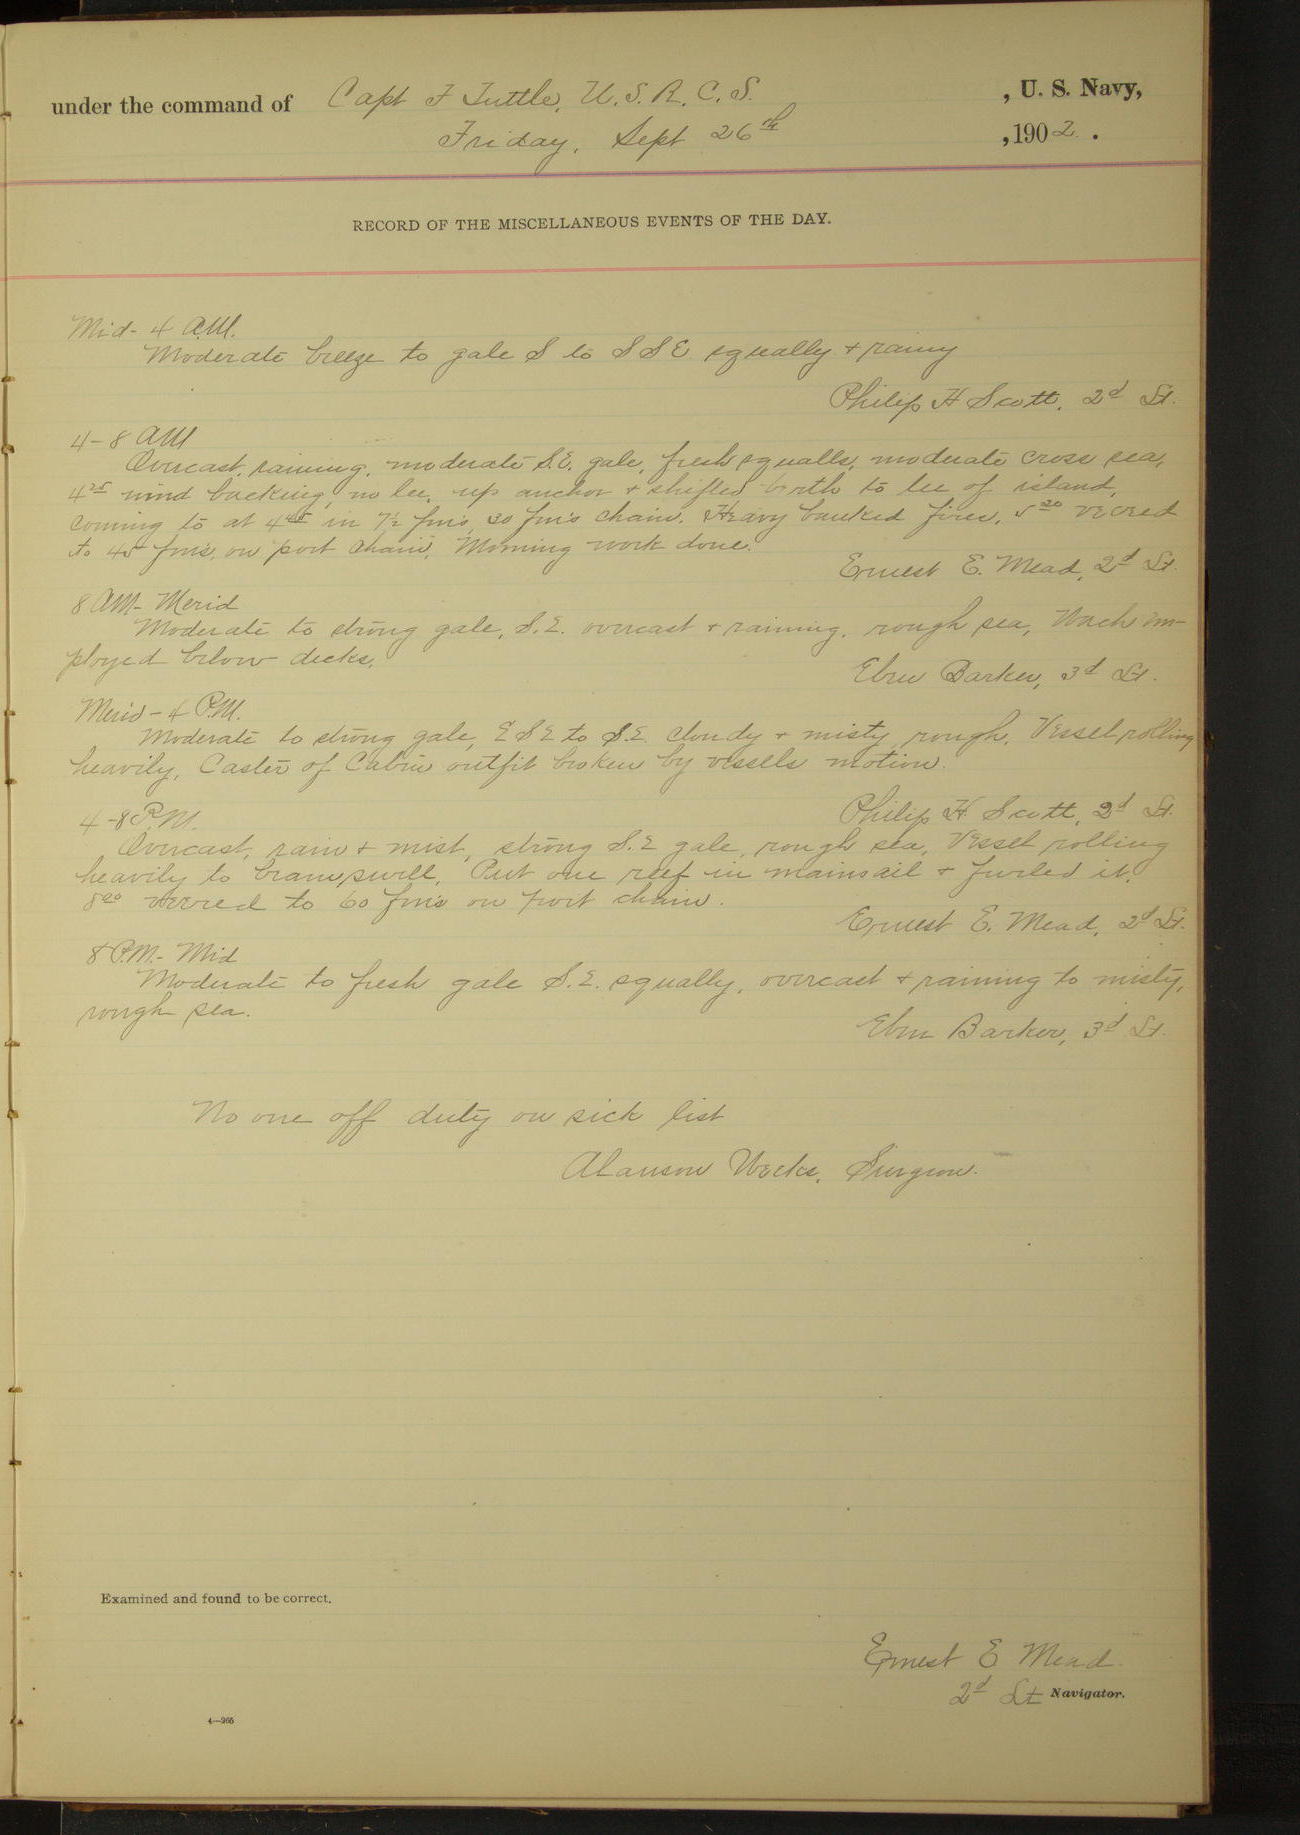 under the command of Capt F Tuttle, U.S.R.C.S. , U. S. Navy,
Friday, Sept 26th , 1902.
RECORD OF THE MISCELLANEOUS EVENTS OF THE DAY.
Mid- 4 AM.
Moderate breeze to gale S to SSE squally + rainy
Philip H Scott, 2d Lt.
4-8 AM
Overcast, raining, moderate S.E. gale, fresh squalls, moderate cross sea,
4 25 wind backing, no lee, up anchor + shifted berth to lee of island,
coming to at 4 45 in 7½ fms, 30 fms chain. Heavy banked fires, 5 20 veered
to 45 fms, on port chain, Morning work done.
Ernest E. Mead, 2d Lt.
8 AM- Merid
Moderate to strong gale, S.E. overcast + raining, rough sea, Watch em-
ployed below decks.
Eben Barker, 3d Lt.
Merid - 4 P.M.
Moderate to strong gale, ESE to S.E. cloudy + misty rough, Vessel rolling
heavily, Caster of Cabin outfit broken by vessels motion.
Philip H Scott, 2d Lt.
4-8 P.M.
Overcast, rain + mist, strong S.E gale, rough sea, Vessel rolling
heavily to beam swell, Put one reef in mainsail + furled it,
8 00 veered to 60 fms on port chain.
Ernest E. Mead, 2d Lt.
8 P.M.- Mid
Moderate to fresh gale S.E. squally, overcast + raining to misty,
rough sea.
Eben Barker, 3d Lt.
No one off duty on sick list
Alanson Weeks, Surgeon.
Examined and found to be correct.
Ernest E Mead
2d Lt Navigator.
4—965